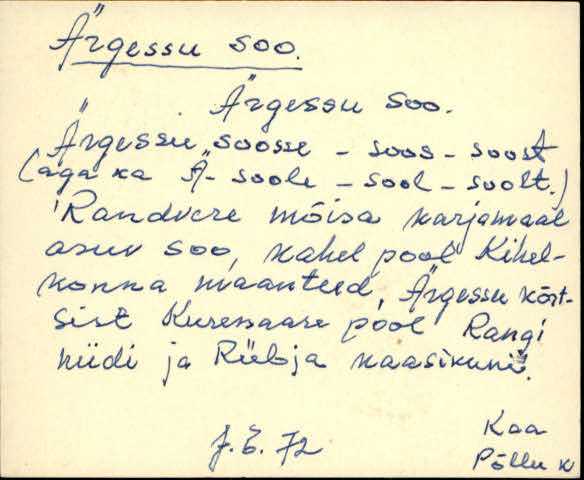 Ärgessu soo.
Ärgessu soo.
Ärgessu soosse - soos - soost
(aga ka Ä- soole - sool - soolt.)
Randvere mõisa karjamaal
asuv soo, kahel pool Kihel-
konna maanteed, Ärgessu kõrt-
sist Kuressaare pool Rangi
niidi ja Riibja kaasikuni.
J. E. 72
Kaa
Põllu k